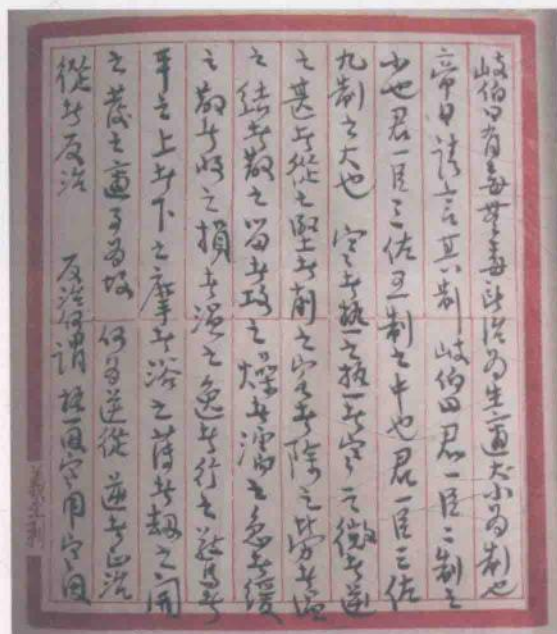 岐伯曰有毒無毒所治為主適大小為制也
帝曰請言其制 岐伯曰君一臣二制之
小也君一臣三佐五制之中也君一臣三佐
九制之大也 寒者熱之熱者寒之微者逆
之甚者從之堅者削之客者除之勞者溫
之結者散之留者攻之燥者濡之急者緩
之散者收之損者溫之逸者行之驚者
平之上者下之摩者浴之薄者劫之開
之發之適事為故 何為逆從 逆者正治
從者反治 反治何謂 熱因寒用寒因